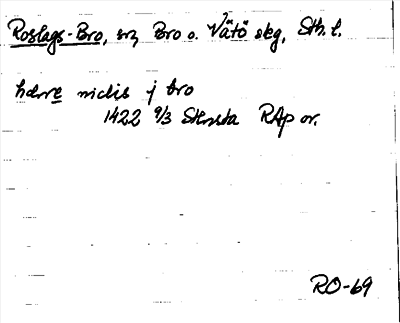 Roslags-Bro, sn, Bro o. Vätö skg, Sth. l.
hærre niclis j bro
1422 9/3 Stensta RAp or.
RO-69